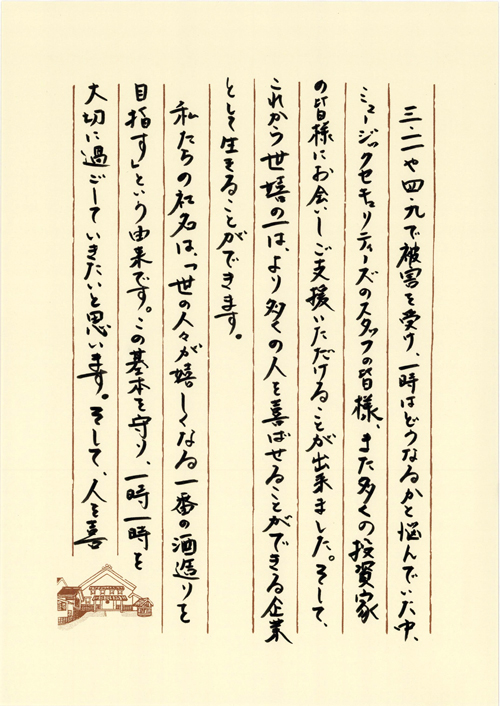 三・一一や四・九で被害を受け、一時はどうなるかと悩んでいた中、
ミュージックセキュリティーズのスタッフの皆様、また多くの投資家
の皆様にお会いしご支援いただけることが出来ました。そして、
これから世嬉の一は、より多くの人を喜ばせることができる企業
として生きることができます。
私たちの社名は、「世の人々が嬉しくなる一番の酒造りを
目指す」という由来です。この基本を守り、一時一時を
大切に過ごしていきたいと思います。そして、人を喜